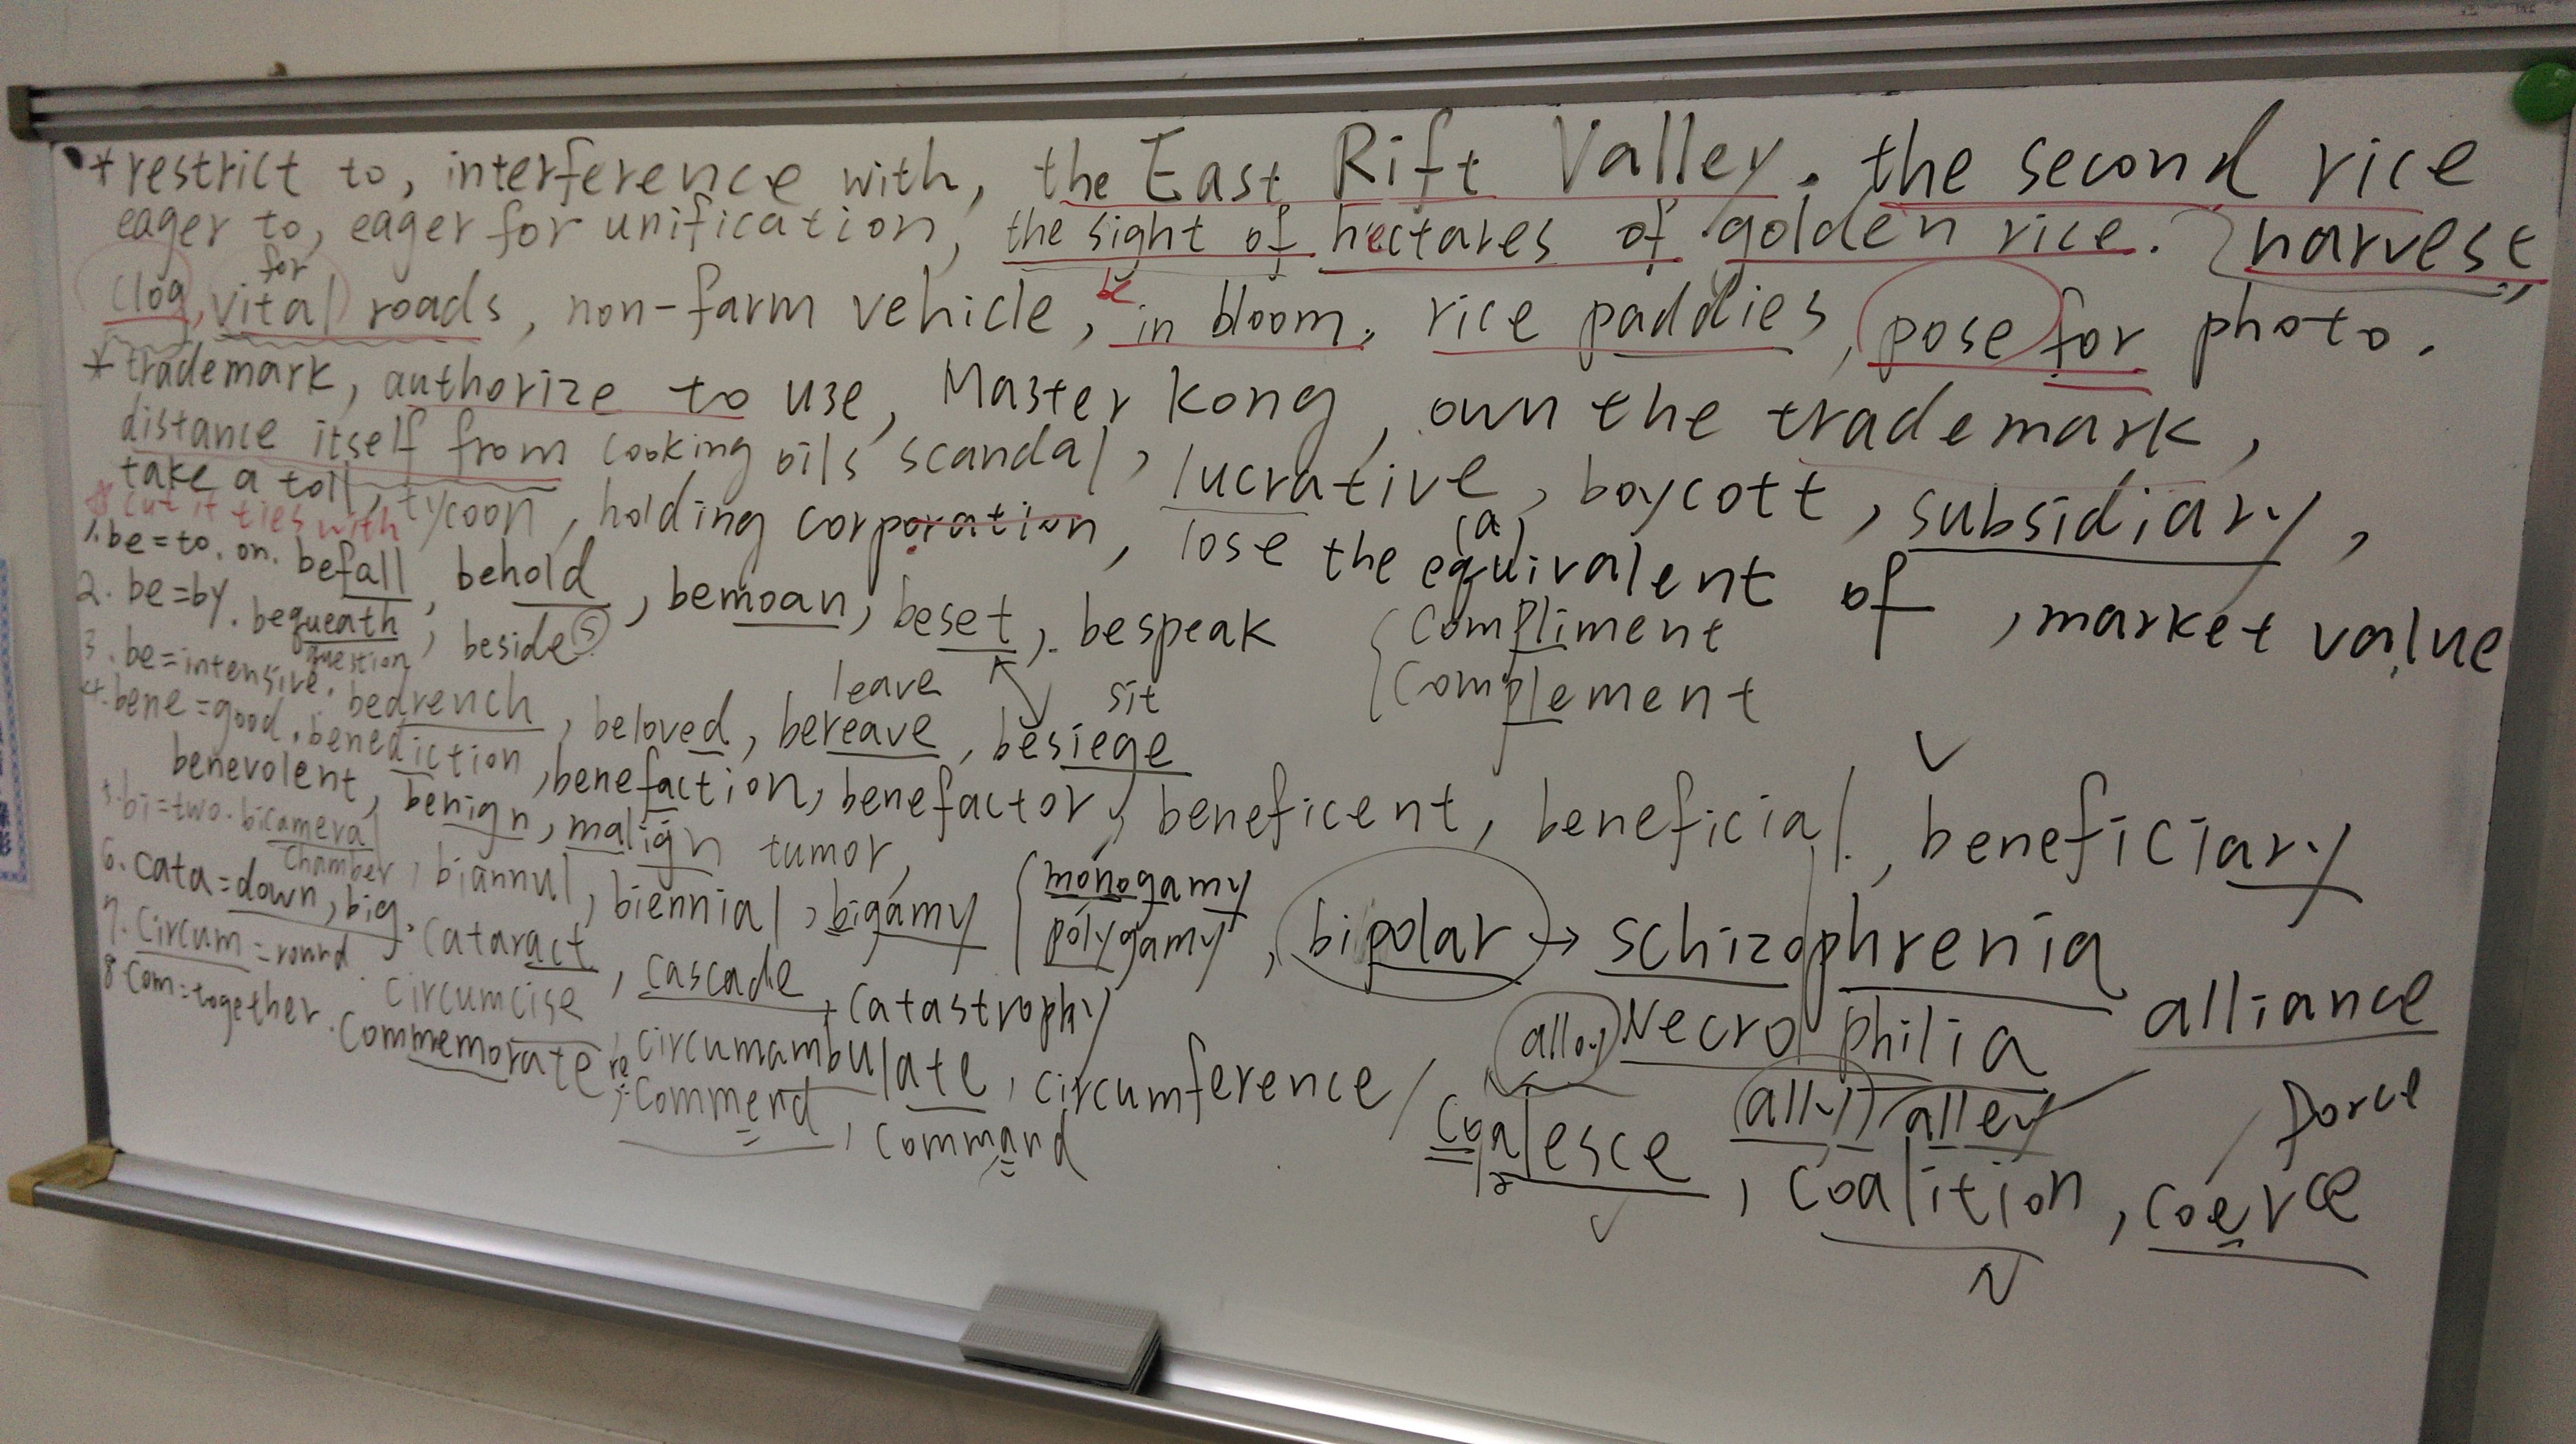 * restrict to, interference with, the East Rift Valley. the second rice
eager to, eager for unification, the sight of hectares of golden rice. harvest,
for
clog, vital roads, non-farm vehicle, be in bloom. rice paddies, pose for photo.
* trademark, authorize to use, Master Kong, own the trademark,
distance itself from cooking oils scandal, lucrative, boycott, subsidiary,
take a toll, tycoon, holding corporation, lose the equivalent of, market value
(a)
cut it ties with
1. be=to. on. befall, behold, bemoan, beset, bespeak
Compliment
Complement
2. be=by. bequeath, beside(s)
question
leave
sit
3. be=intensive. bedrench, beloved, bereave, besiege
4. bene=good. benediction, benefaction, benefactor, beneficent, beneficial, beneficiary
benevolent, benign, malign tumor,
5. bi=two. bicameral, biannul, biennial, bigamy, bipolar → schizophrenia
chamber
monogamy
polygamy
Necrophilia
6. cata=down, big. Cataract, cascade, catastrophy
7. Circum=round. circumcise, circumambulate, circumference
8. Com=together. Commemorate, commend, command
re
alloy
ally
alley
alliance
force
coalesce, coalition, coerce